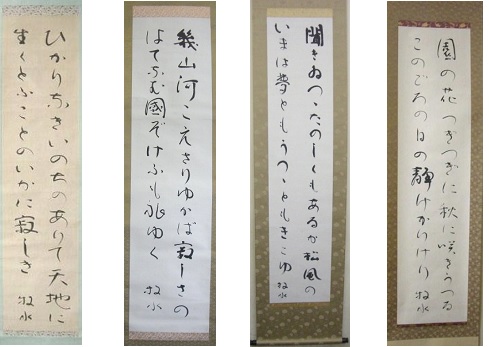 ひかりなきいのちのありて天地に
生くとふことのいかに寂しき 牧水
幾山河こえさりゆかば寂しさの
はてなむ國ぞけふも旅ゆく 牧水
聞きゐつゝたのしくもあるか松風の
いまは夢ともうつゝともきこゆ 牧水
園の花つぎつぎに秋に咲きうつる
このごろの日の静けかりけり 牧水